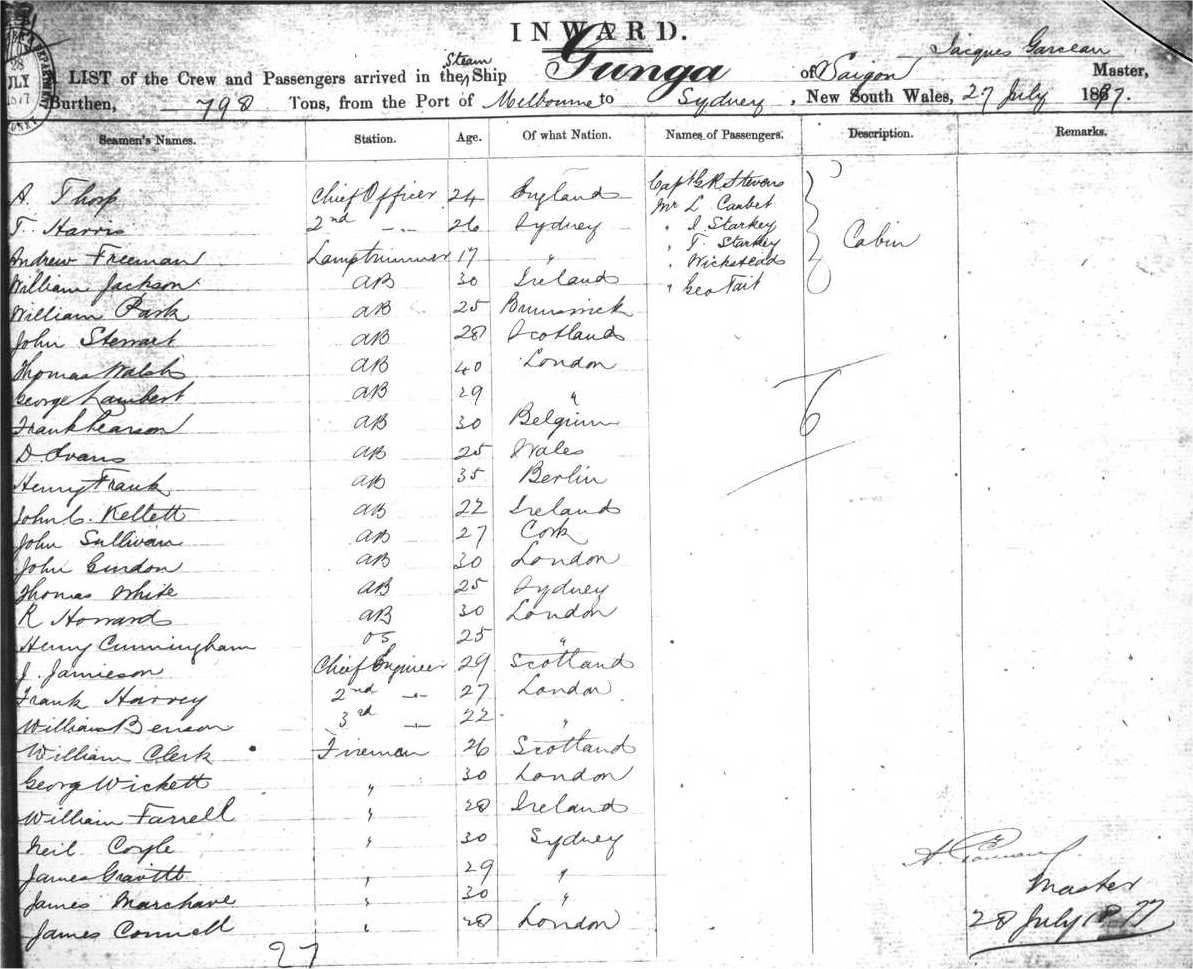 INWARD.
Jacques Garceau
LIST of the Crew and Passengers arrived in the Steam Ship Gunga of Saigon Master,
Burthen, 798 Tons, from the Port of Melbourne to Sydney, New South Wales, 27 July 1877.
Seamen's Names. Station. Age. Of what Nation. Names of Passengers. Description. Remarks.
A. Thorp Chief Officer 24 England Capt G R Stevens
T. Harris 2nd " 26 Sydney Mr L Caubet
Andrew Freeman Lamptrimmer 17 " " I Starkey Cabin
William Jackson AB 30 Ireland " T. Starkey
William Park AB 25 Brunswick " Wickstead
John Stewart AB 28 Scotland " Geo Tait
Thomas Walsh AB 40 London
George Lambert AB 29 "
Frank Pearson AB 30 Belgium 6
D. Evans AB 25 Wales
Henry Frank AB 35 Berlin
John C. Kellett AB 22 Ireland
John Sullivan AB 27 Cork
John AB 30 London
Thomas White AB 25 Sydney
R Howard AB 30 London
Henry Cunningham OS 25 "
J. Jamieson Chief Engineer 29 Scotland
Frank Harvey 2nd " 27 London
William Benson 3rd " 22 "
William Clerk Fireman 26 Scotland
George Wickett " 30 London
William Farrell " 28 Ireland
Neil Coyle " 30 Sydney
James " 29 "
James " 30 " Master
James Connell " 28 London 28 July 1877
27